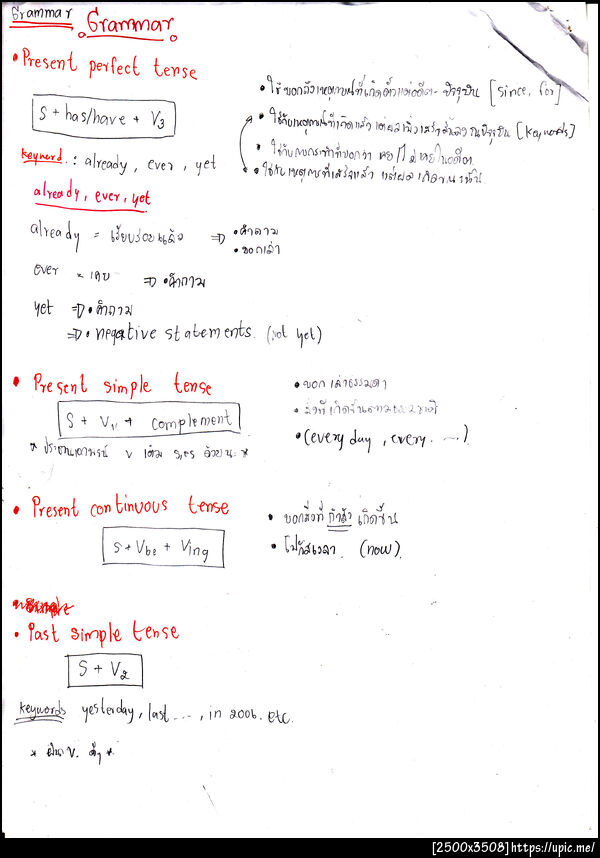 Grammar
Grammar
• Present perfect tense
S + has/have + V3
keyword : already, ever, yet
• ใช้บอกถึงเหตุการณ์ที่เกิดตั้งแต่อดีต - ปัจจุบัน [since, for]
• ใช้กับเหตุการณ์ที่เกิดแล้ว แต่เพิ่งเสร็จสิ้นลงในปัจจุบัน [keywords]
• ใช้กับการกระทำที่บอกว่า เคย/ไม่เคยในอดีต
• ใช้กับเหตุการณ์ที่เสร็จแล้ว แต่ผล
already, ever, yet
already = เรียบร้อยแล้ว ⇒ • คำถาม
• บอกเล่า
ever = เคย ⇒ • คำถาม
yet ⇒ • คำถาม
⇒ • negative statements. (not yet)
• Present simple tense
S + V1 + complement
* ประธานเอกพจน์ v เติม s,es ด้วยนะ *
• บอกเล่าธรรมดา
• สิ่งที่เกิดขึ้นตามธรรมชาติ
• (every day, every ....)
• Present continuous tense
S + Vbe + Ving
• บอกสิ่งที่ กำลัง เกิดขึ้น
• โฟกัสเวลา (now)
• Past simple tense
S + V2
keywords yesterday, last ...., in 2006. etc.
[2500x3508]https://upic.me/